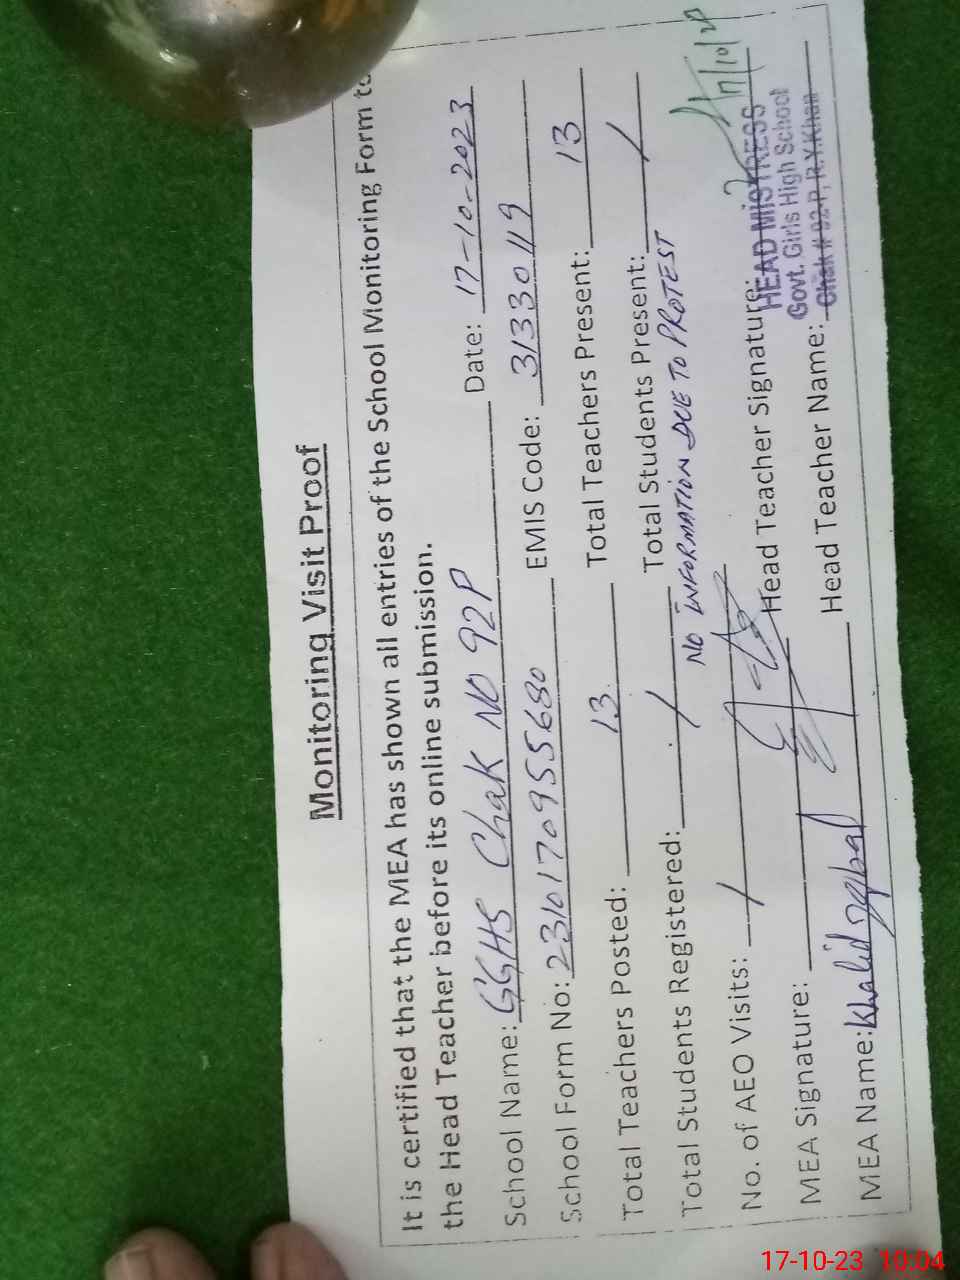 Monitoring Visit Proof
It is certified that the MEA has shown all entries of the School Monitoring Form to
the Head Teacher before its online submission.
School Name: GGHS Chak NO 92P Date: 17-10-2023
School Form No: 2310170955680 EMIS Code: 31330119
Total Teachers Posted: 13 Total Teachers Present: 13
Total Students Registered: / Total Students Present: /
NO INFORMATION DUE TO PROTEST
No. of AEO Visits: / Head Teacher Signature:
HEAD MISTRESS
Govt. Girls High School
Chak # 92-P, R.Y.Khan
MEA Signature: Head Teacher Name:
MEA Name: Khalid Iqbal
17-10-23 10:04